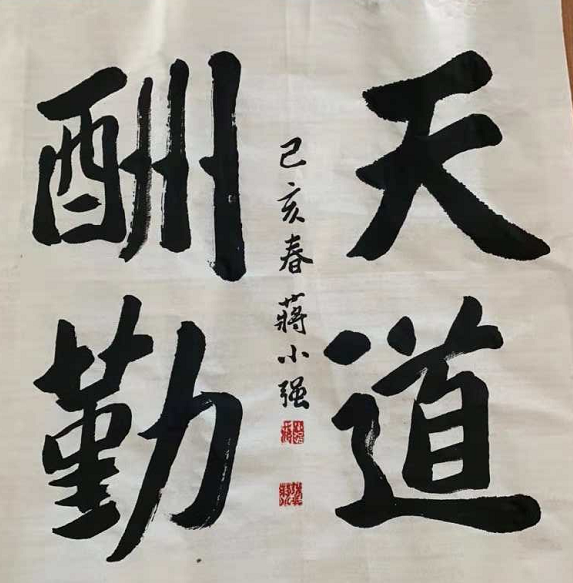 天道
酬勤
己亥春蒋小强